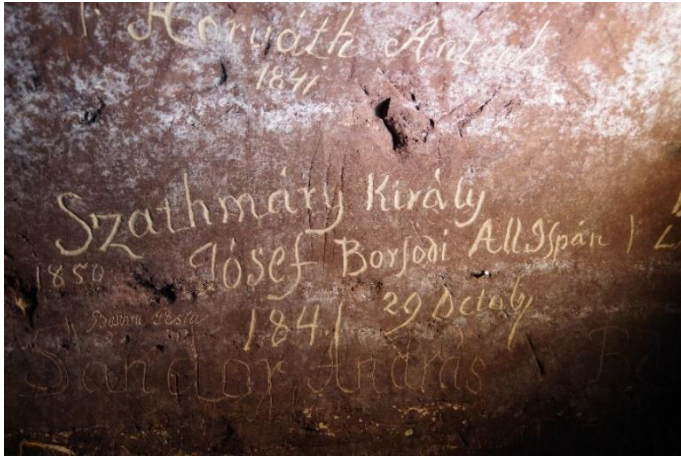 Horváth Antal
1841
Szathmáry Király
Jósef Borsodi AllIspán
1850
1841 29 Octob
Sandor András